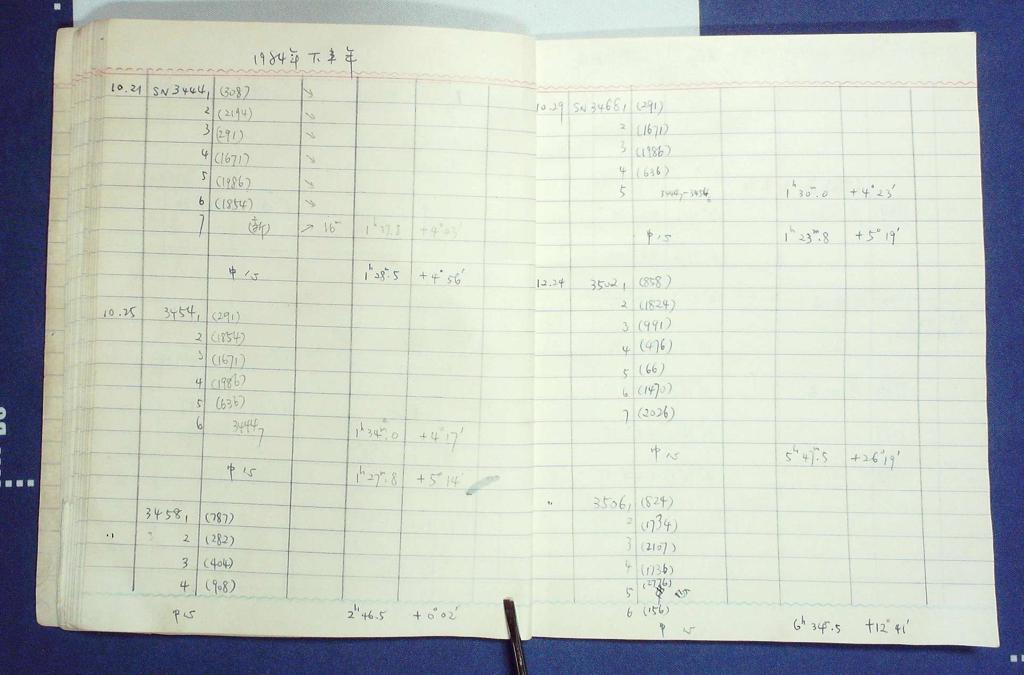 1984年下半年
10.21 SN 3444₁ (308) ↘
2 (2194) ↘
3 (291) ↘
4 (1671) ↘
5 (1986) ↘
6 (1854) ↘
7 (新) → 16ᵐ 1ʰ37.8 +4°03′
中心 1ʰ28ᵐ.5 +4°56′
10.25 3454₁ (291)
2 (1854)
3 (1671)
4 (1986)
5 (636)
6 3444₇ 1ʰ34ᵐ.0 +4°17′
中心 1ʰ27ᵐ.8 +5°14′
3458₁ (787)
〃 2 (282)
3 (404)
4 (908)
中心 2ʰ46.5 +0°02′
10.29 SN 3468₁ (291)
2 (1671)
3 (1986)
4 (636)
5 3444₇-3454₆ 1ʰ30ᵐ.0 +4°23′
中心 1ʰ23ᵐ.8 +5°19′
12.24 3502₁ (858)
2 (1824)
3 (991)
4 (476)
5 (66)
6 (1470)
7 (2026)
中心 5ʰ47ᵐ.5 +26°19′
〃 3506₁ (824)
2 (1734)
3 (2107)
4 (1736)
5 (2776)
6 (156)
中心 6ʰ34ᵐ.5 +12°41′